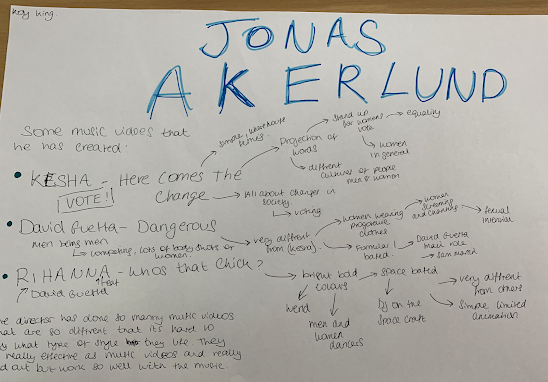 Kay King.
JONAS
AKERLUND
Some music vidoes that
he has created:
• KESHA – Here comes the
Change
VOTE!
simple, warehouse
Projection of
words
Stand up
for womens
vote
equality
women
in general
different
cultures of people
men & women
All about changes in
society.
voting
• David Guetta – Dangerous
men being men
competing, lots of body shots of
women.
very different
from (kesha).
women wearing
clothes
women screaming
and cheering
sexual
intensive
Formular 1
bated.
David Guetta
main role
• RIHANNA – whos that chick?
↑ feat
David Guetta
bright bold
colours
weird
men and
women
dancers
space bated
DJ on the
space craft
very different
from others
simple limited
animation
director has done so many music videos
that are so diffrent that its hard to
what type of style they use they
really effective as music videos and really
out but work so well with the music.